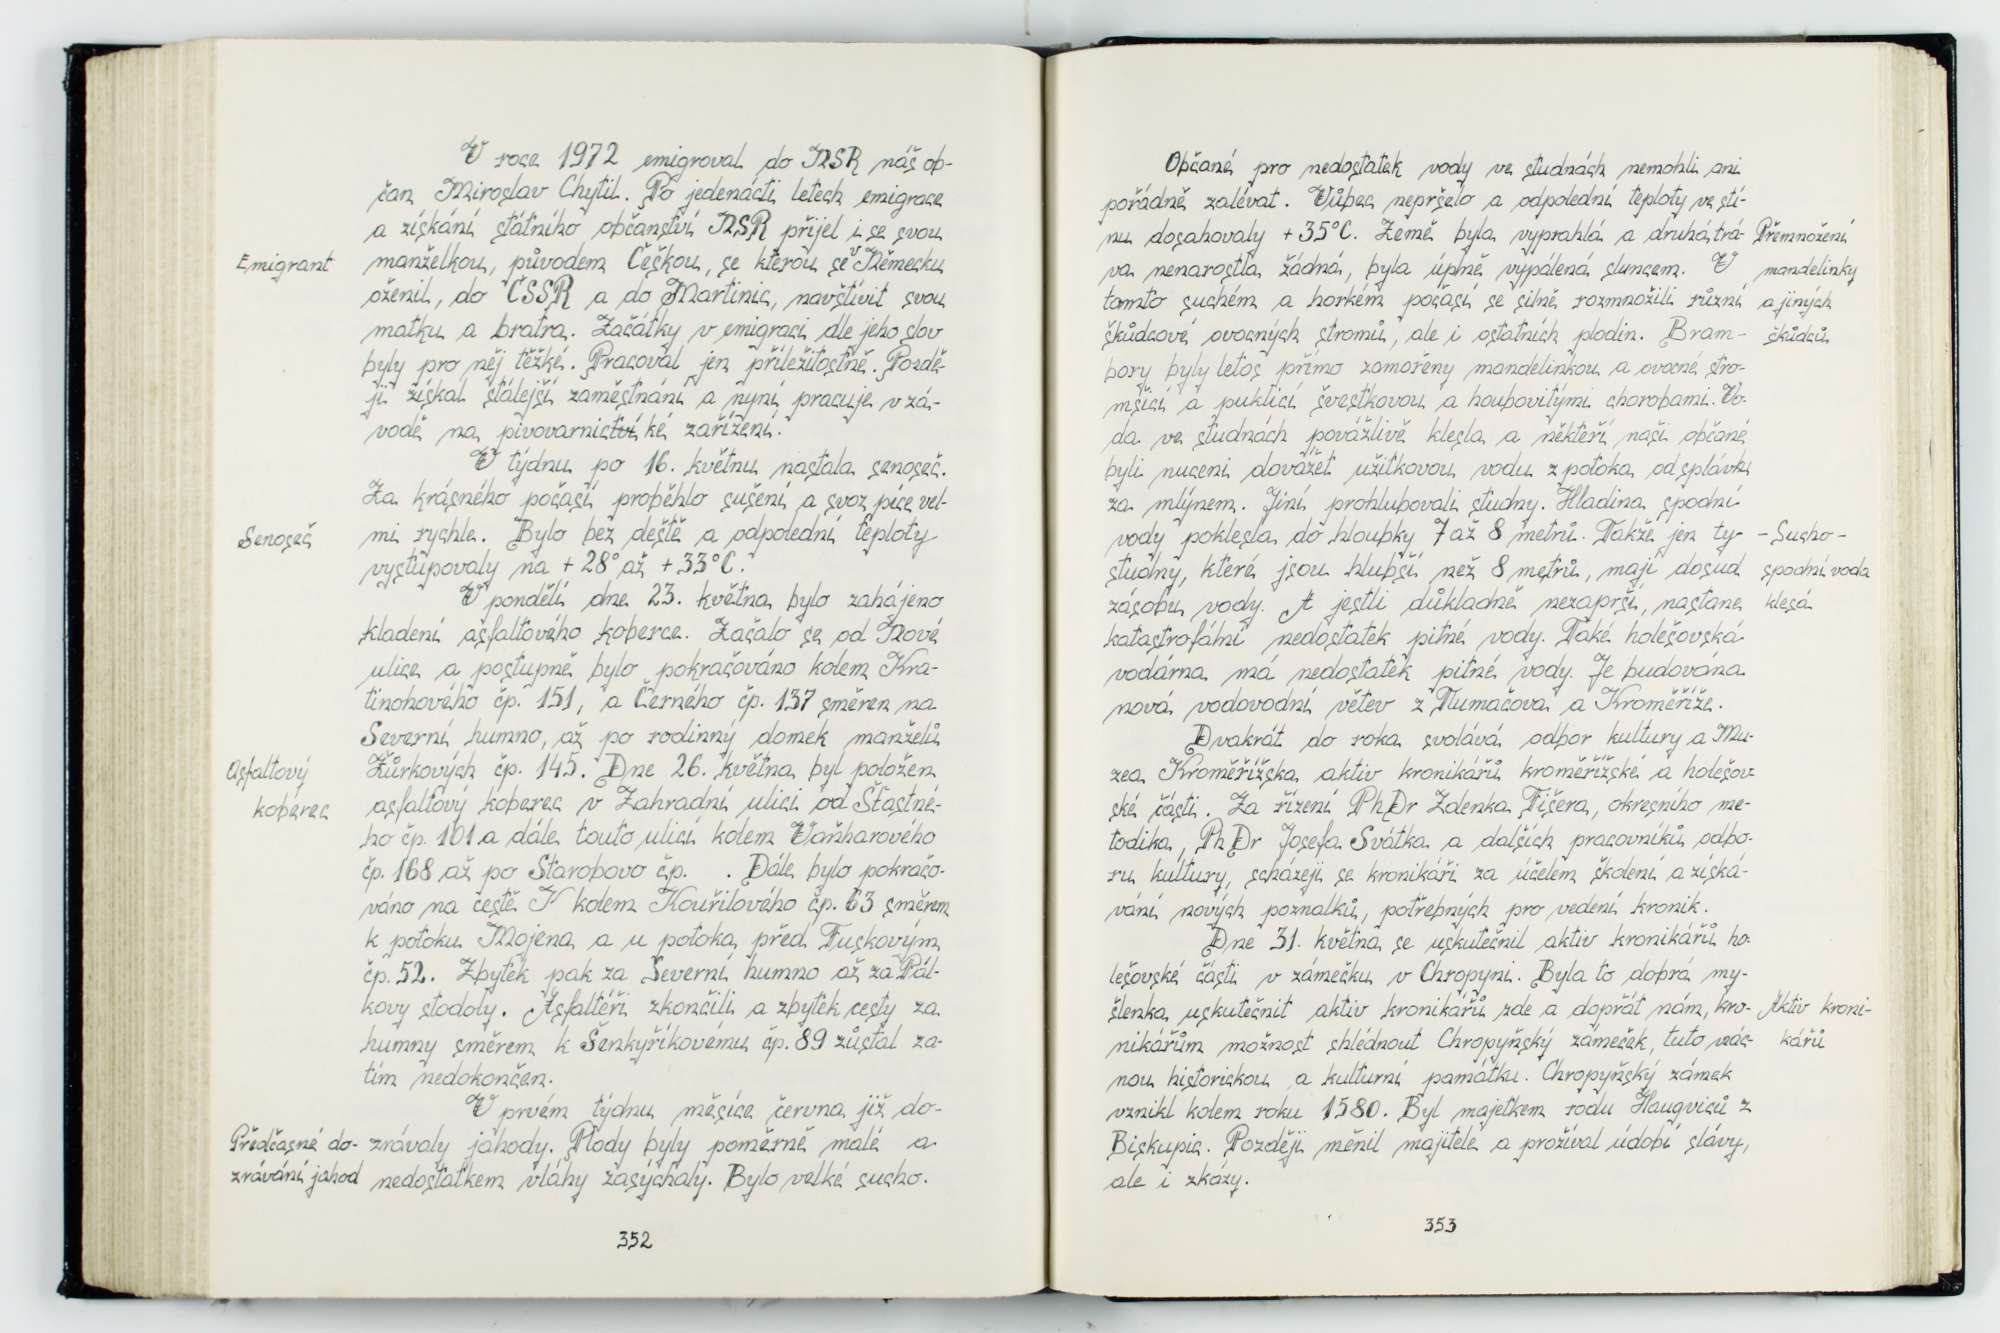 V roce 1972 emigroval do NSR náš ob-
čan Miroslav Chytil. Po jedenácti letech emigrace
a získání státního občanství NSR přijel i se svou
Emigrant
manželkou, původem Češkou, se kterou se v Německu
oženil, do ČSSR a do Martinic, navštívit svou
matku a bratra. Začátky v emigraci dle jeho slov
byly pro něj těžké. Pracoval jen příležitostně. Pozdě-
ji získal stálejší zaměstnání a nyní pracuje v zá-
vodě na pivovarnictví ké zařízení.
V týdnu po 16. květnu nastala senoseč.
Za krásného počasí proběhlo sušení a svoz píce vel-
Senoseč
mi rychle. Bylo bez deště a odpolední teploty
vystupovaly na + 28° až + 33°C.
V pondělí dne 23. května bylo zahájeno
kladení asfaltového koberce. Začalo se od Nové
ulice a postupně bylo pokračováno kolem Kra-
tinohového čp. 151, a Černého čp. 137 směrem na
Severní humno, až po rodinný domek manželů
Asfaltový
koberec
Žůrkových čp. 145. Dne 26. května byl položen
asfaltový koberec v Zahradní ulici od Šťastné-
ho čp. 101 a dále touto ulicí kolem Vaňharového
čp. 168 až po Starobovo čp. . Dále bylo pokračo-
váno na cestě K kolem Kouřilového čp. 63 směrem
k potoku Mojena a u potoka před Fuskovým
čp. 52. Zbytek pak za Severní humno až za Pál-
kovy stodoly. Asfaltéři zkončili a zbytek cesty za
humny směrem k Šenkyříkovému čp. 89 zůstal za-
tím nedokončen.
V prvém týdnu měsíce června již do-
Předčasné do-
zrávání jahod
zrávaly jahody. Plody byly poměrně malé a
nedostatkem vláhy zasýchaly. Bylo velké sucho.
352
Občané pro nedostatek vody ve studnách nemohli ani
pořádně zalévat. Vůbec nepršelo a odpolední teploty ve stí-
nu dosahovaly + 35°C. Země byla vyprahlá a druhá trá-
va nenarostla žádná, byla úplně vypálená sluncem. V
tomto suchém a horkém počasí se silně rozmnožili různí
škůdcové ovocných stromů, ale i ostatních plodin. Bram-
Přemnožení
mandelinky
a jiných
škůdců
bory byly letos přímo zamořeny mandelinkou a ovocné stro-
mšicí a puklicí švestkovou a houbovitými chorobami. Vo-
da ve studnách povážlivě klesla a někteří naši občané
byli nuceni dovážet užitkovou vodu z potoka od splávku
za mlýnem. Jiní prohlubovali studny. Hladina spodní
vody poklesla do hloubky 7 až 8 metrů. Takže jen ty
studny, které jsou hlubší než 8 metrů, mají dosud
zásobu vody. A jestli důkladně nezaprší, nastane
- Sucho -
spodní voda
klesá
katastrofální nedostatek pitné vody. Také holešovská
vodárna má nedostatek pitné vody. Je budována
nová vodovodní větev z Tlumačova a Kroměříže.
Dvakrát do roka svolává odbor kultury a Mu-
zea Kroměřížska aktiv kronikářů kroměřížské a holešov-
ské části. Za řízení PhDr Zdenka Fišera, okresního me-
todika, PhDr Josefa Svátka a dalších pracovníků odbo-
ru kultury, scházejí se kronikáři za účelem školení a získá-
vání nových poznatků, potřebných pro vedení kronik.
Dne 31. května se uskutečnil aktiv kronikářů ho-
lešovské části v zámečku v Chropyni. Byla to dobrá my-
šlenka uskutečnit aktiv kronikářů zde a dopřát nám, kro-
nikářům možnost shlédnout Chropyňský zámeček, tuto vzác-
Aktiv kroni-
kářů
nou historickou a kulturní památku. Chropyňský zámek
vznikl kolem roku 1580. Byl majetkem rodu Haugviců z
Biskupic. Později měnil majitele a prožíval údobí slávy,
ale i zkázy.
353